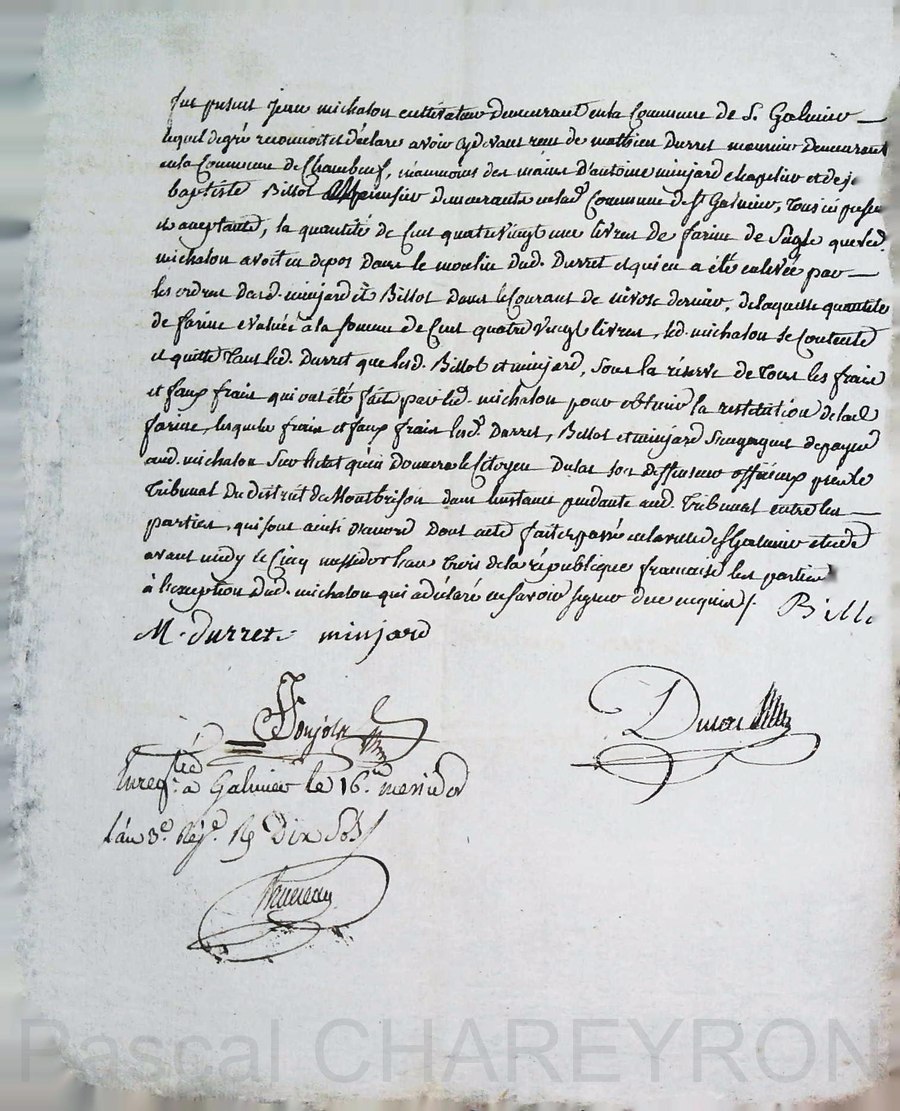 fut present jean michalon cultivateur demeurant en la Commune de S. Galmier
lequel de gré reconnoit et déclare avoir cydevant reçu de mathieu Durret meunier demeurant
en la Commune de Chambeuf, néanmoins des mains d'antoine minjard chapelier et de je
baptiste Billot demeurants en lad. Commune de St Galmier, tous ici presen
et acceptants, la quantité de Cent quatrevingt une livres de farine de Sagle que led.
michalon avoit en depos Dans le moulin dud. Durret et qui en a été enlevée par
les ordres desd. minjard et Billot Dans le Courant de nivose dernier, de laquelle quantité
de farine evaluée a la somme de Cent quatre vingt livres, led. michalon se Contente
et quitte tant led. Durret que lesd. Billot et minjard, sous la réserve de tous les frais
et faux frais qui ont été faits par led. michalon pour obtenir la restitution de lad.
farine, lesquels frais et faux frais lesd. Durret, Billot et minjard s'engagent de payer
aud. michalon sur l'etat qu'en Donnera le Citoyen Dulac son deffenseur officieux pres le
Tribunal du district de Montbrison dans l'instance pendante aud. Tribunal entre les
parties, qui sont ainsi d'accord Dont acte fait et passé en la ville de St Galmier etude
avant midy le Cinq messidor l'an trois de la république francaise les parties
à l'exception dud. michalon qui a déclaré ne savoir signer de ce enquis /. Bill
M. durret minjard
Ponjols
Enregtré à Galmier le 16. messidor
l'an 3e. Rép. R Dix Sols
Pascal CHAREYRON